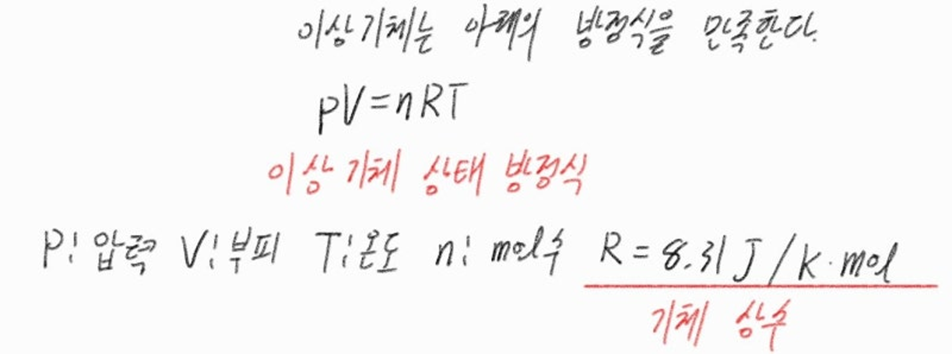 이상기체는 아래의 방정식을 만족한다.
pV=nRT
이상 기체 상태 방정식
P: 압력 V: 부피 T: 온도 n: mol수 R = 8.31 J/K·mol
기체 상수